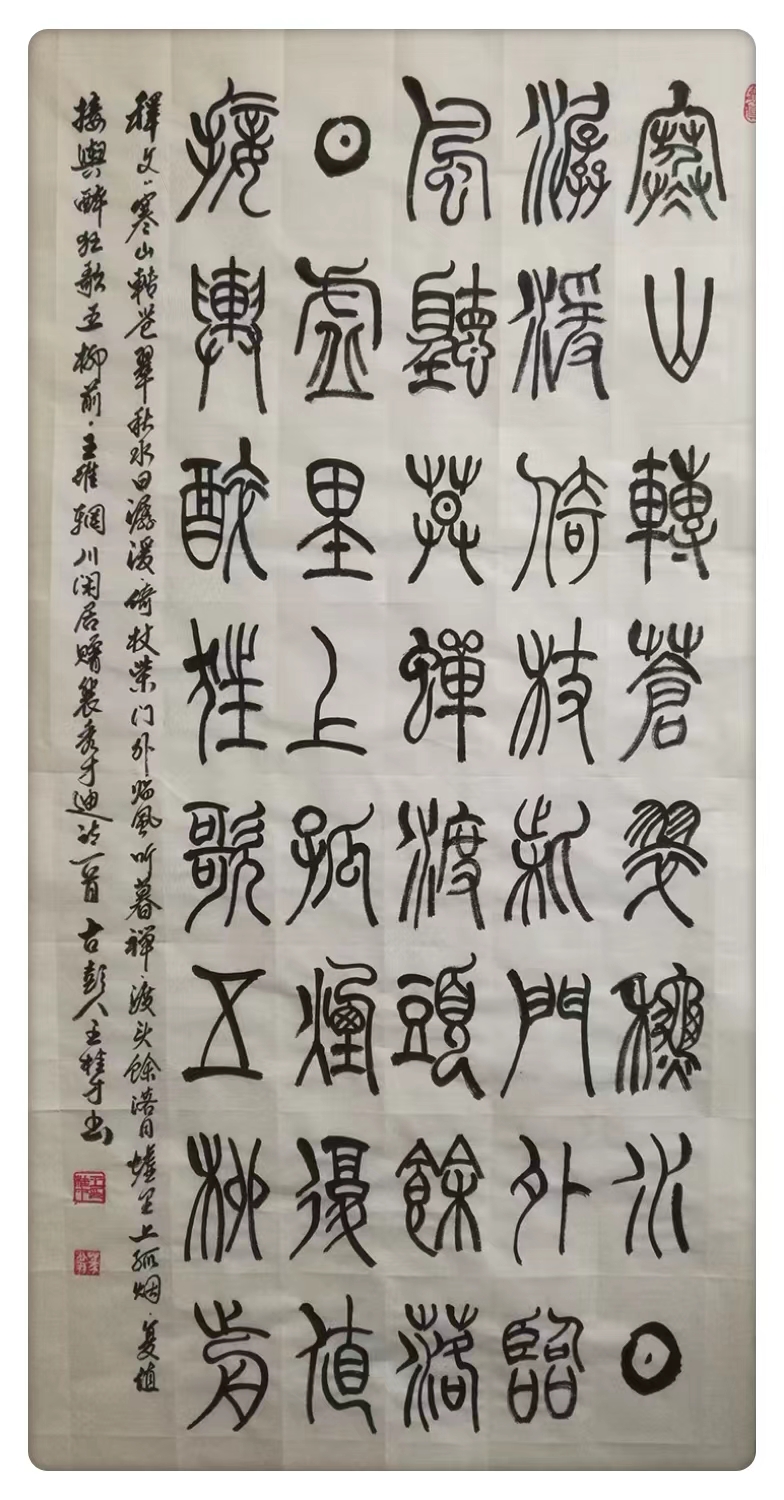 寒山轉蒼翠龝水日
潺湲倚杖柴門外臨
風聽暮蟬渡頭餘落
日虛里上孤煙復值
接輿醉狂歌五柳前
释文：寒山转苍翠秋水日潺湲倚杖柴门外临风听暮禅渡头馀落日墟里上孤烟·复值
接舆醉狂歌五柳前·王维辋川闲居赠裴秀才迪诗一首 古彭人王桂才书